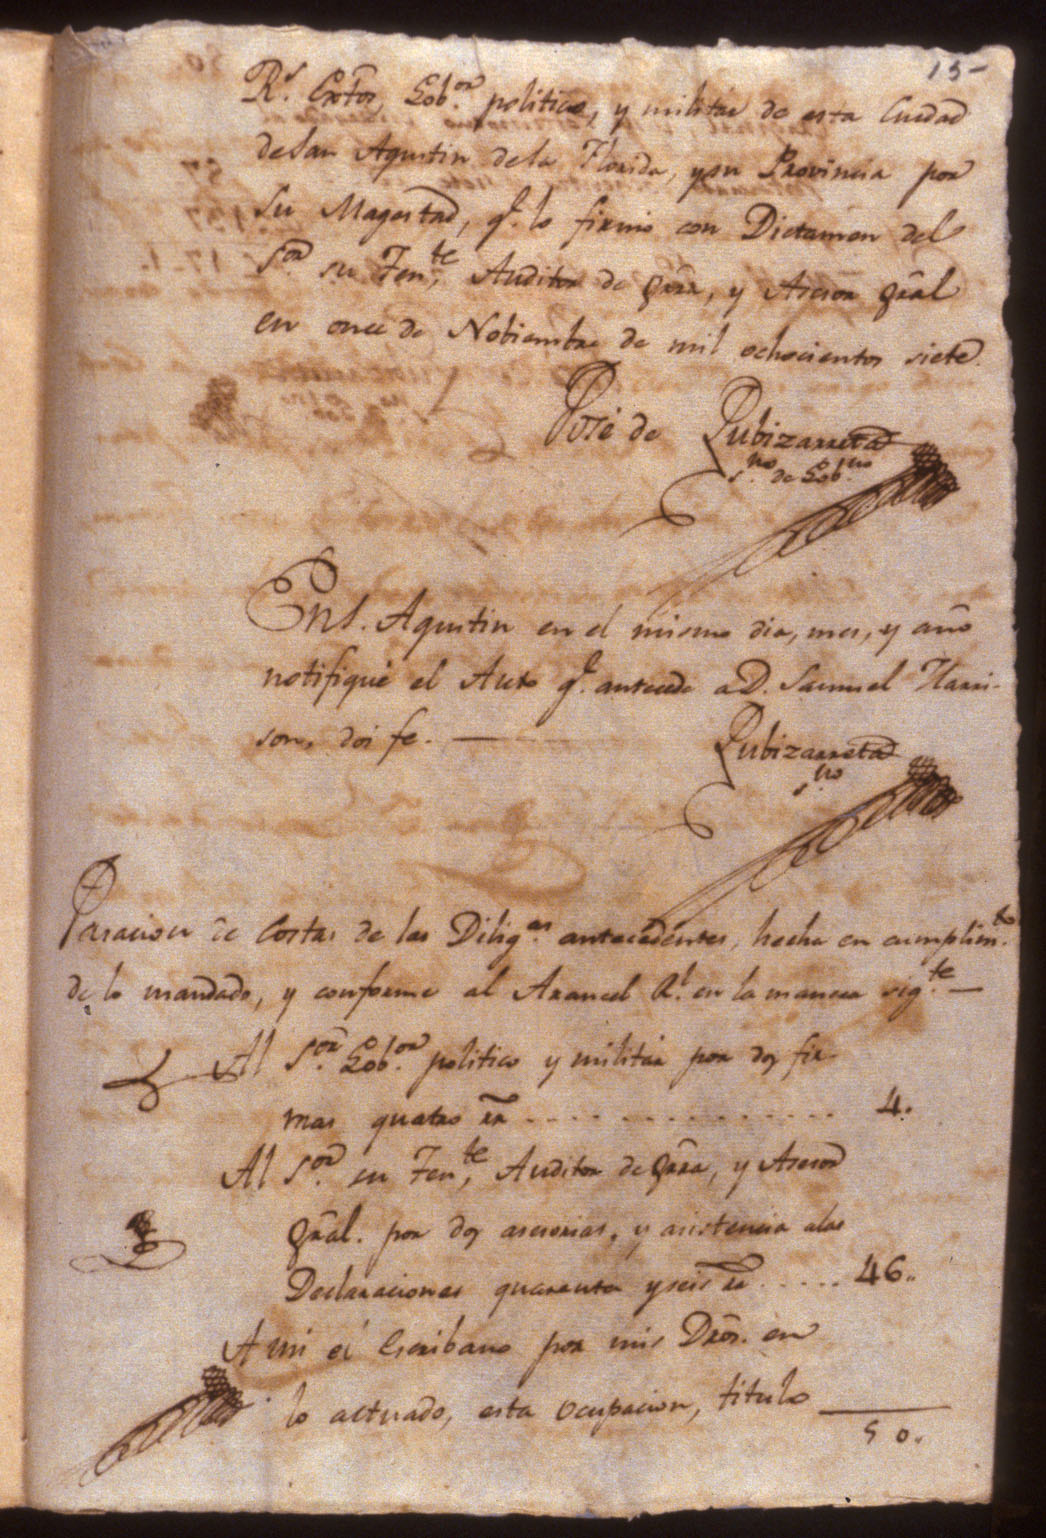 15-
R.s Extos, Gob.or politico, y militar de esta Ciudad
de San Agustin de la Florida, y su Provincia por
Su Magestad, q.e lo firmó con Dictamen del
S.or su Ten.te Auditor de Grra, y Asesor Gral
en once de Nobiembre de mil ochocientos siete.
José de Zubizarreta
S.no de Gob.no
En S. Agustin en el mismo dia, mes, y año
notifiqué el Auto q.e antecede a D. Samuel Harri-
son, doi fe. —
Zubizarreta
s.no
Tasacion de Costas de las Dilig.as antecedentes, hecha en cumplim.to
de lo mandado, y conforme al Arancel R.l en la manera sig.te —
Al S.or Gob.or politico y militar por dos fir-
mas quatro rr ............ 4.
Al S.or su Ten.te Auditor de Grra, y Asesor
Gral. por dos asesorias, y asistencia a las
Declaraciones quarenta y seis rr ..... 46..
A mi el Escribano por mis Dros. en
lo actuado, esta ocupacion, titulo
50.